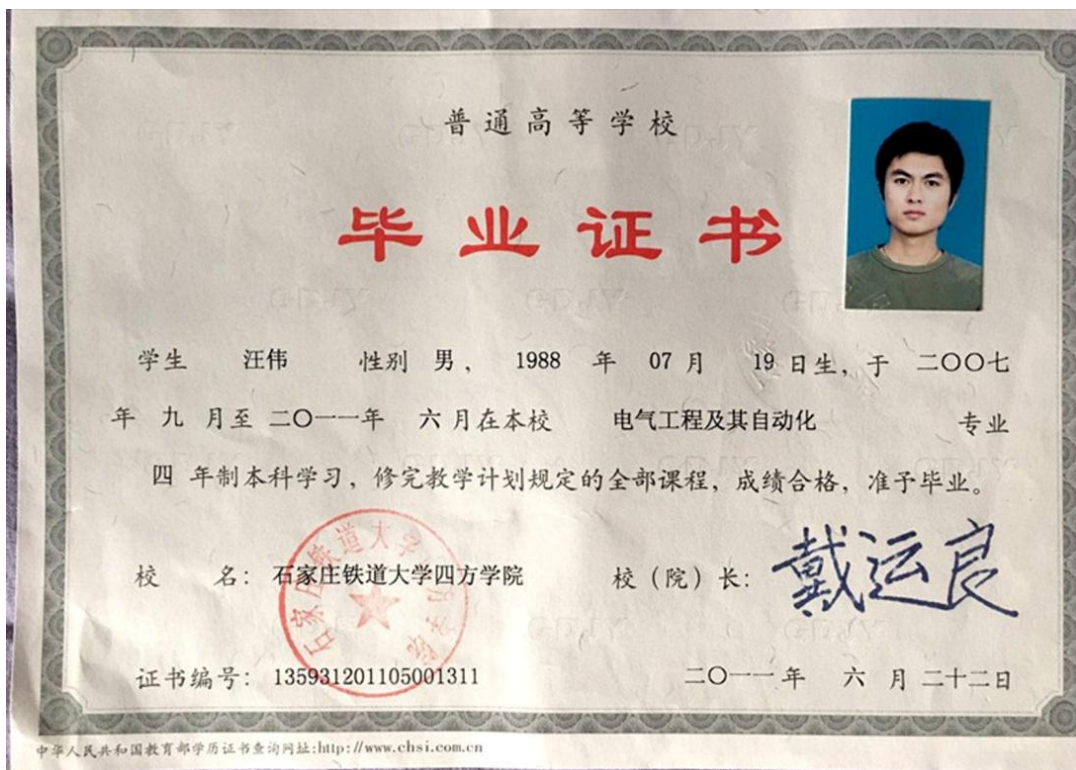 普通高等学校
毕业证书
学生 汪伟 性别 男， 1988 年 07 月 19 日生，于 二〇〇七
年 九 月至 二〇一一年 六 月在本校 电气工程及其自动化 专业
四 年制本科学习，修完教学计划规定的全部课程，成绩合格，准予毕业。
校 名：石家庄铁道大学四方学院 校（院）长：戴运良
石家庄铁道大学四方学院
证书编号：135931201105001311 二〇一一年 六 月 二十二日
中华人民共和国教育部学历证书查询网址:http://www.chsi.com.cn